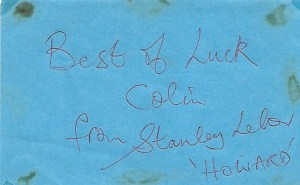 Best of Luck
Colin
from Stanley Lebor
'HOWARD'